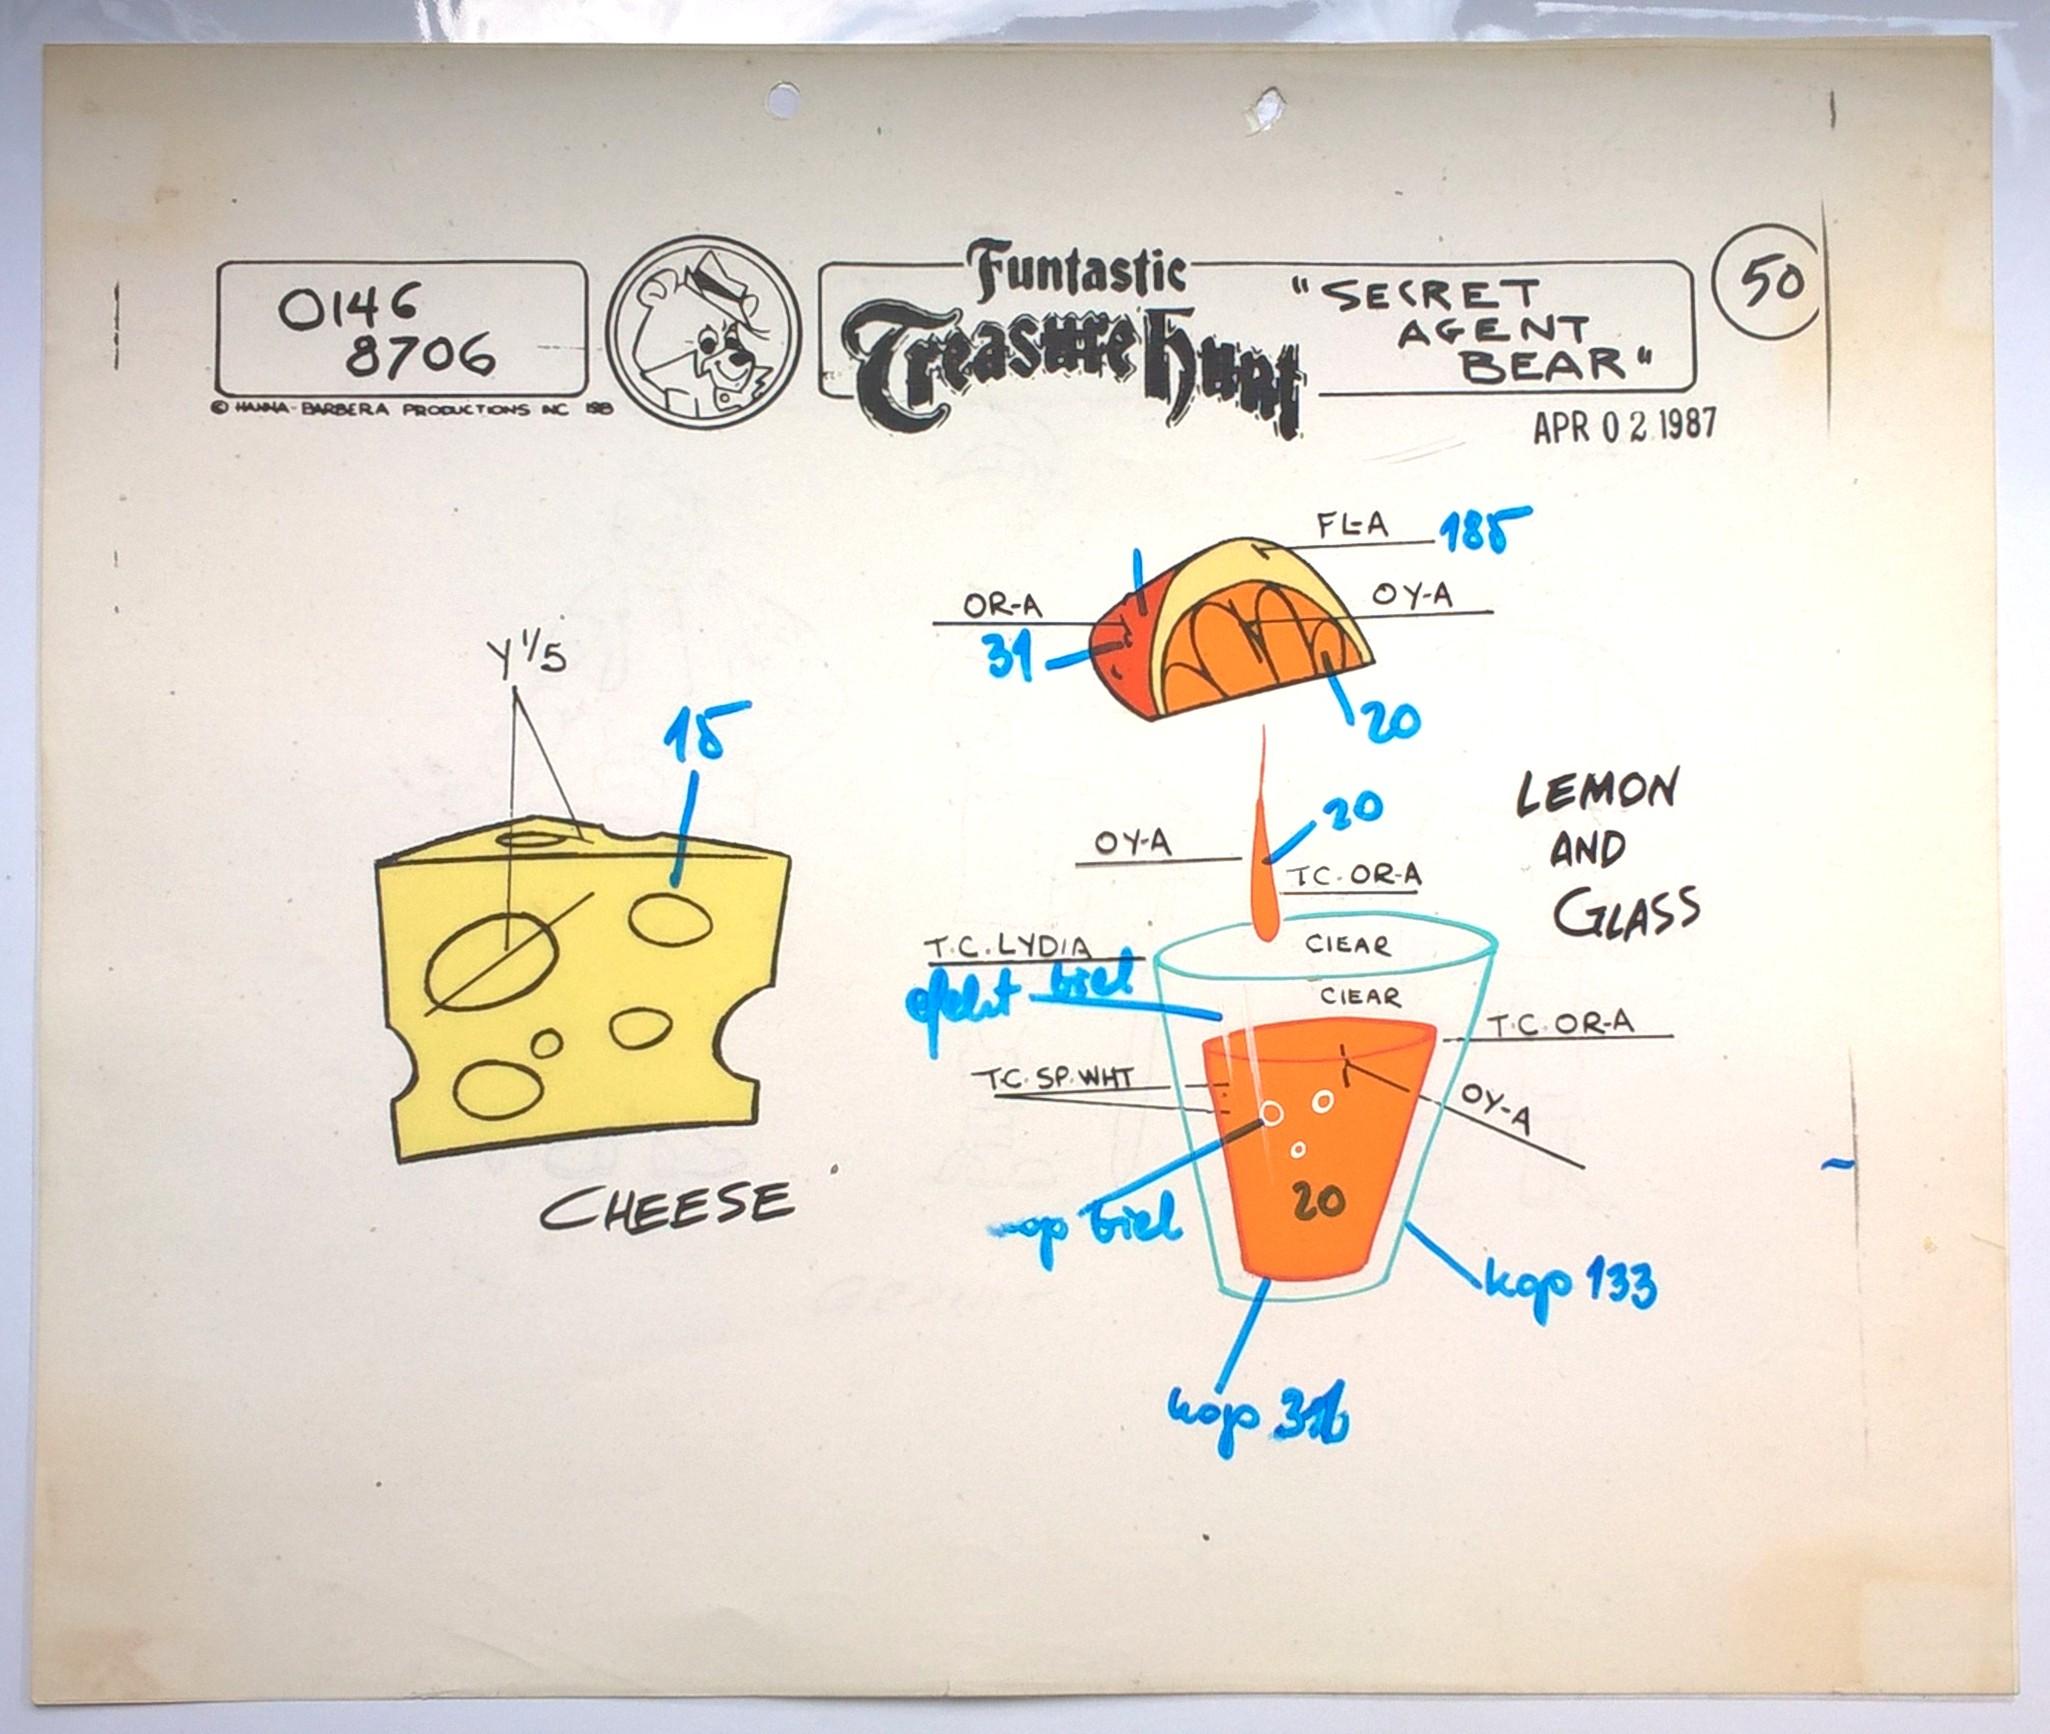 0146
8706
© HANNA-BARBERA PRODUCTIONS INC
Funtastic
Treasure Hunt
"SECRET
AGENT
BEAR"
50
APR 02 1987
FL-A 185
OR-A
OY-A
31
20
Y 1/5
15
20
OY-A
T.C. OR-A
LEMON
AND
GLASS
T.C. LYDIA
CLEAR
efekt biel
CLEAR
T.C. OR-A
T.C. SP. WHT
OY-A
20
CHEESE
biel
kop 133
kop